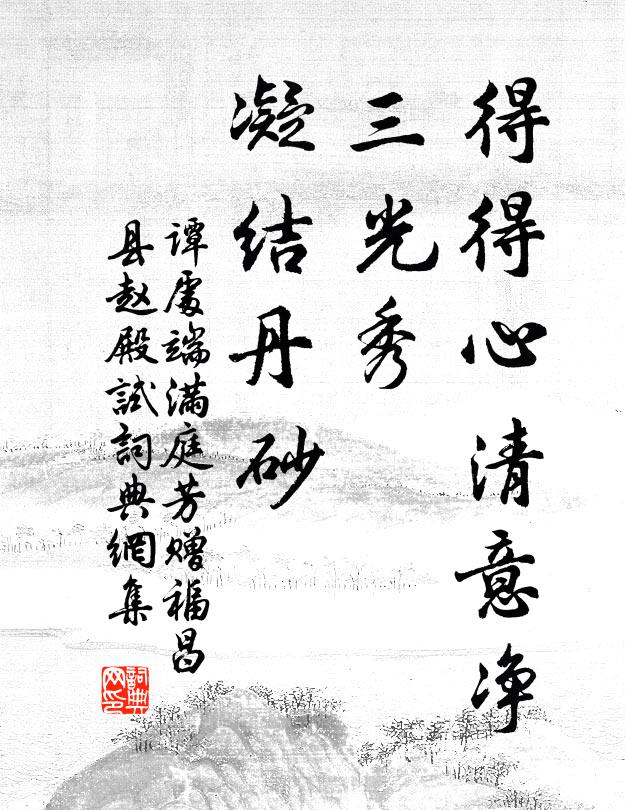 得得心清意净
三光秀
凝结丹砂
谭處端满庭芳赠福昌
县赵殿試詞典網集
詞典
网印